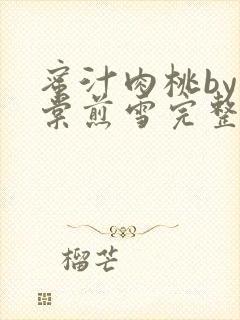 蜜汁肉桃by
棠煎雪完整
榴芒